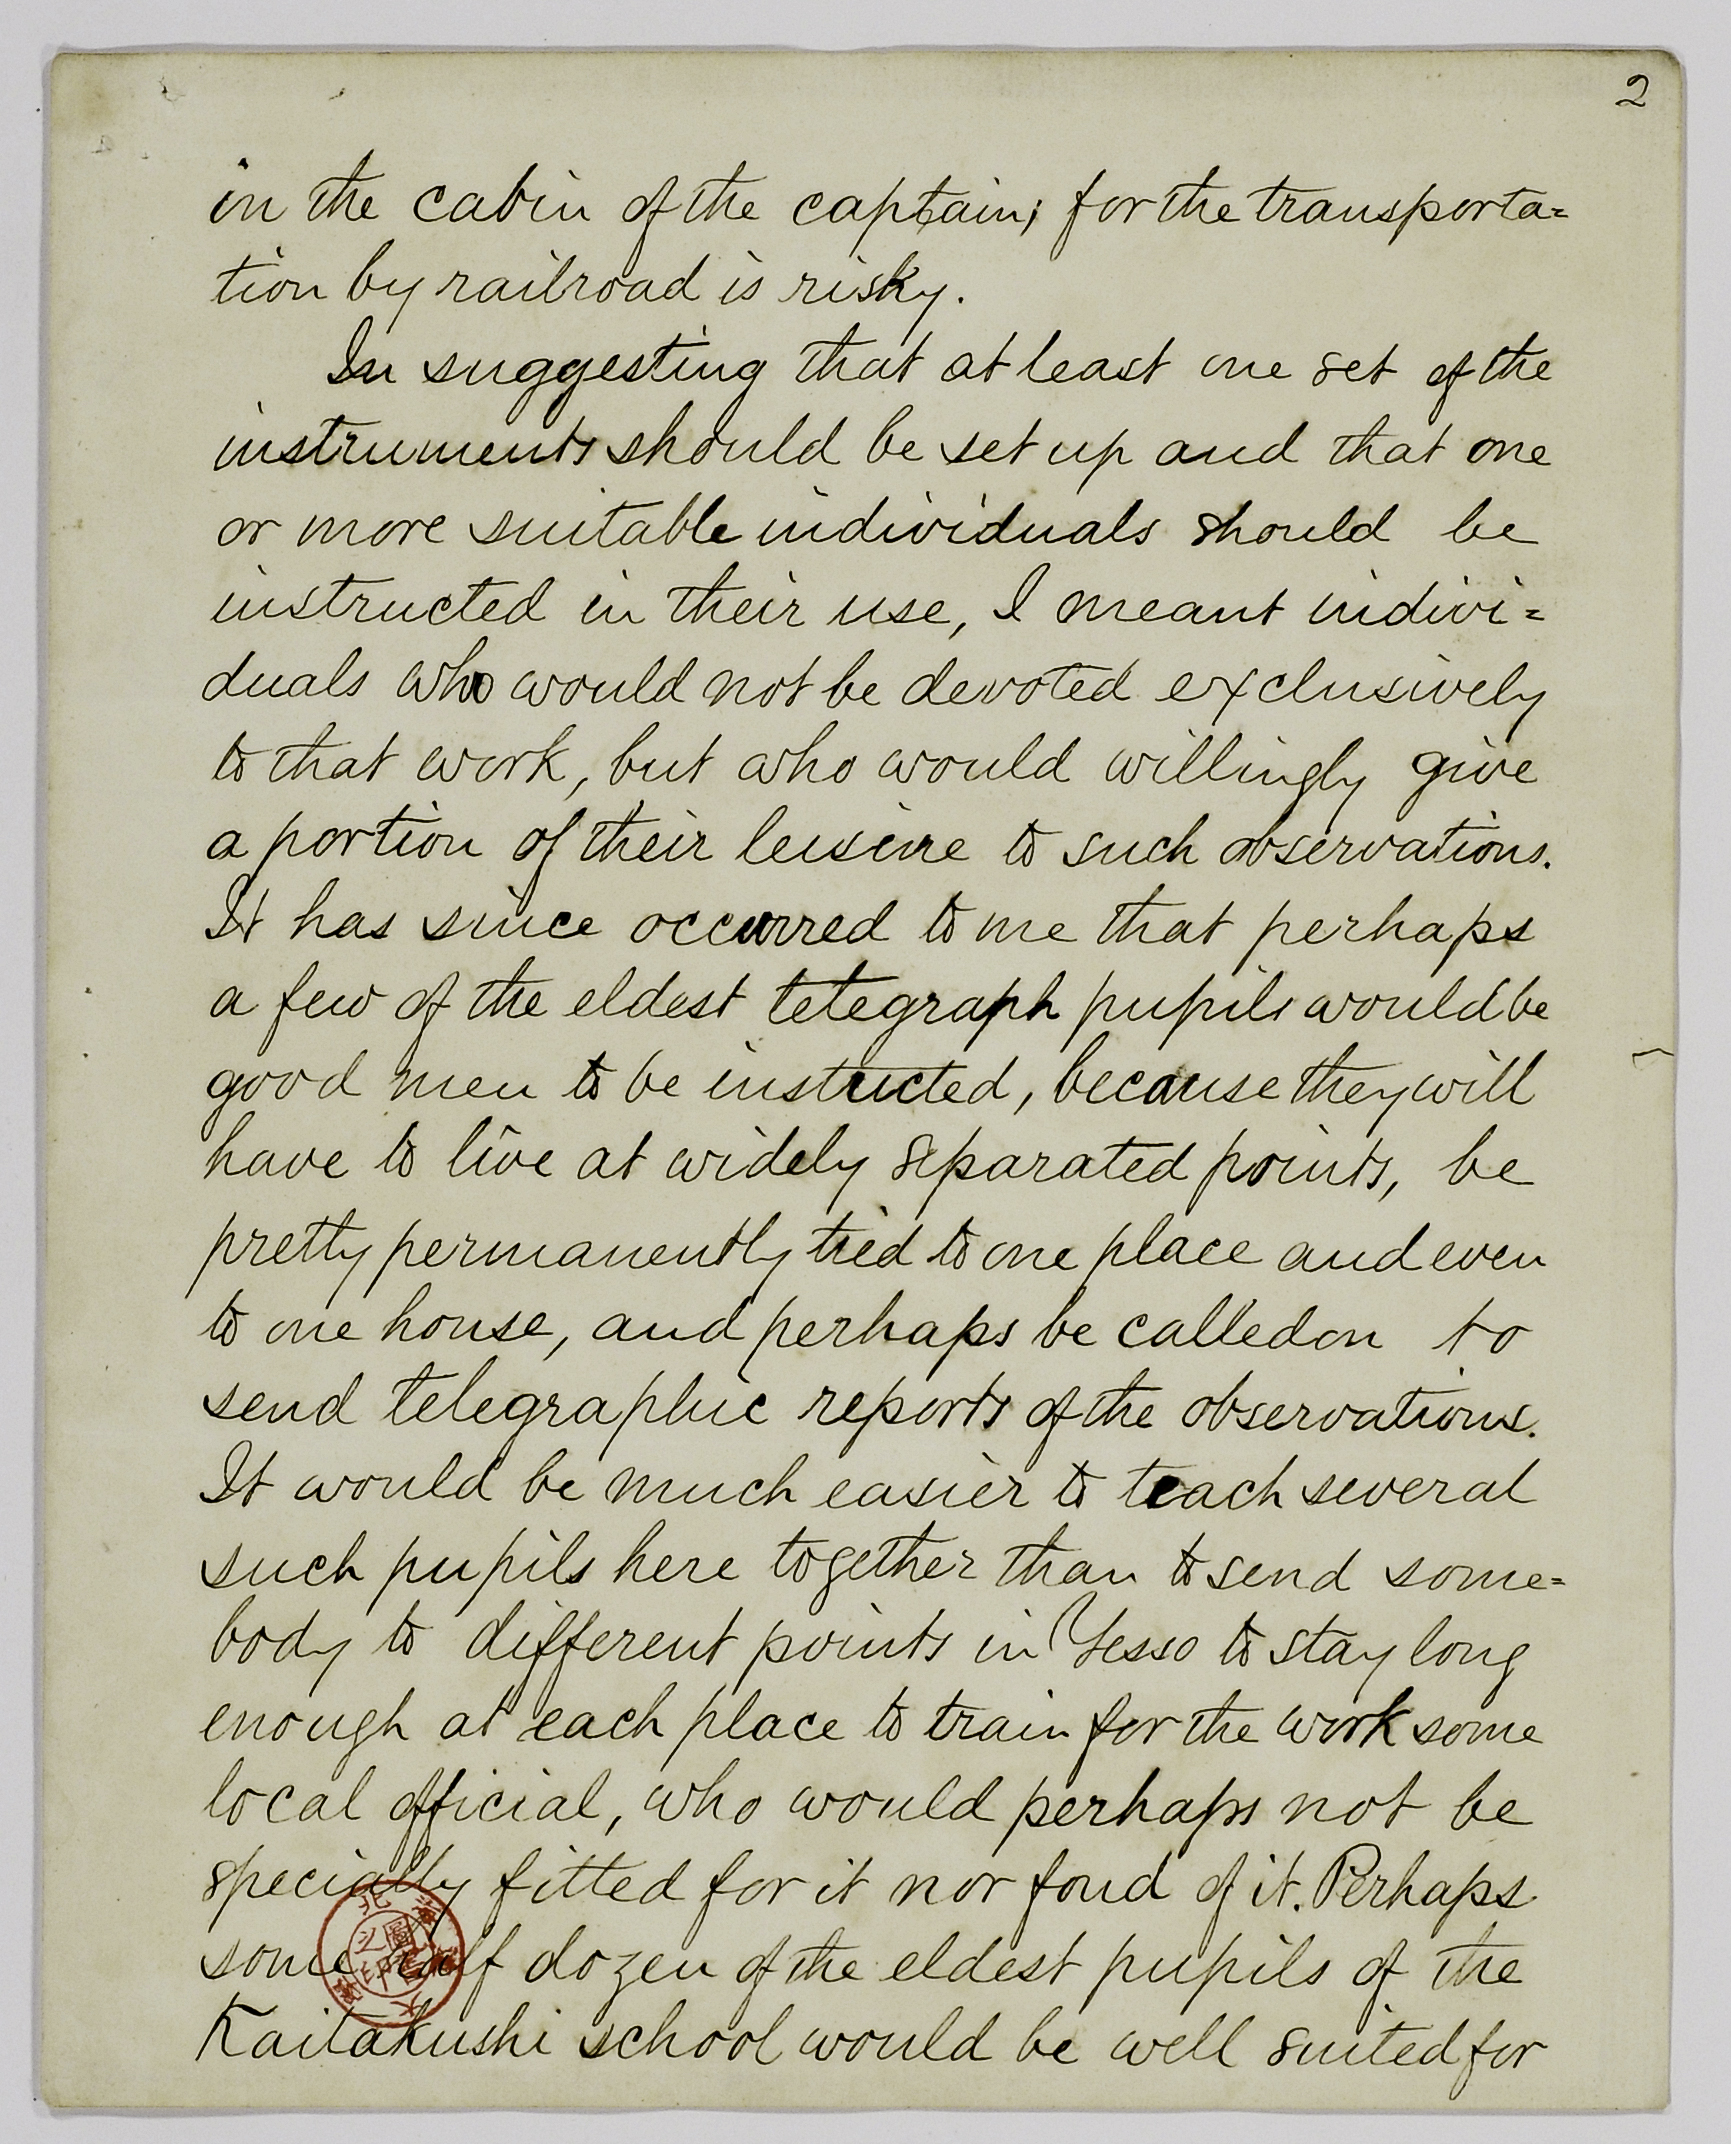 2
in the cabin of the captain; for the transporta=
tion by railroad is risky.
In suggesting that at least one set of the
instruments should be set up and that one
or more suitable individuals should be
instructed in their use, I meant indivi=
duals who would not be devoted exclusively
to that work, but who would willingly give
a portion of their leisure to such observations.
It has since occurred to me that perhaps
a few of the eldest telegraph pupils would be
good men to be instructed, because they will
have to live at widely separated points, be
pretty permanently tied to one place and even
to one house, and perhaps be called on to
send telegraphic reports of the observations.
It would be much easier to teach several
such pupils here together than to send some=
body to different points in Yesso to stay long
enough at each place to train for the work some
local official, who would perhaps not be
specially fitted for it nor fond of it. Perhaps
some half dozen of the eldest pupils of the
Kaitakushi school would be well suited for